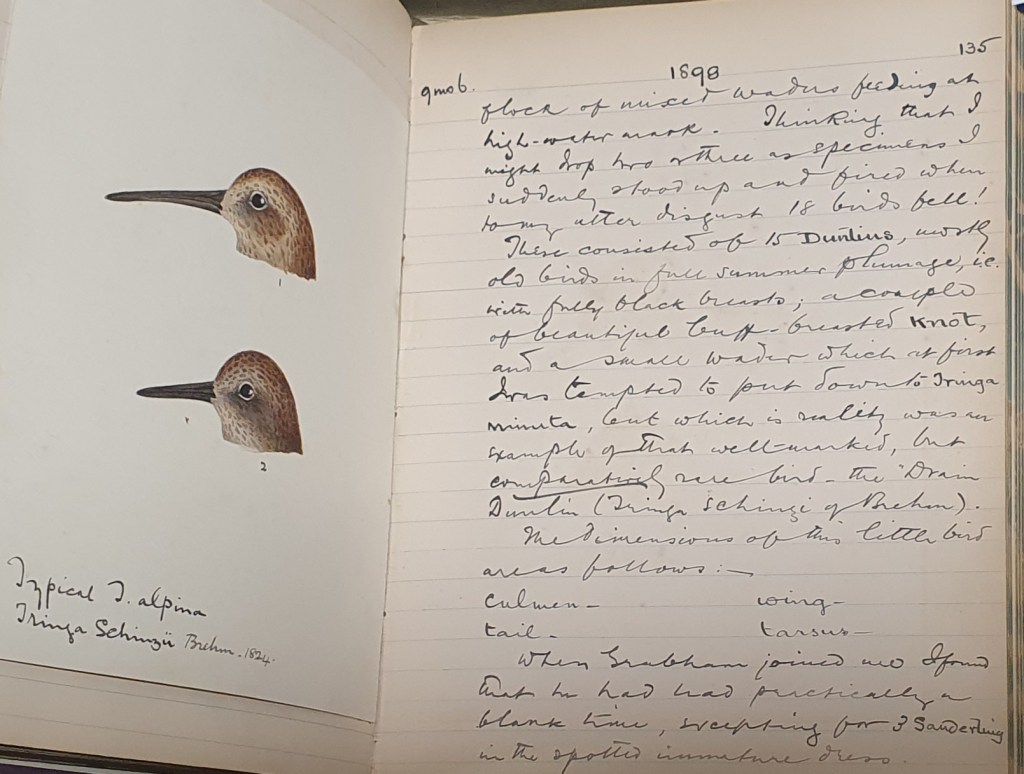 1
2
Typical T. alpina
Tringa Schinzii Brehm. 1824.
1898
135
9 mo 6.
flock of mixed waders feeding at
high-water mark. Thinking that I
might drop two or three as specimens I
suddenly stood up and fired when
to my utter disgust 18 birds fell!
These consisted of 15 Dunlins, mostly
old birds in full summer plumage, i.e.
with fully black breasts; a couple
of beautiful buff-breasted Knot,
and a small wader which at first
I was tempted to put down to Tringa
minuta, but which in reality was an
example of that well-marked, but
comparatively rare bird - the "Drain
Dunlin (Tringa Schinzi of Brehm).
The dimensions of this little bird
are as follows:-
culmen- wing-
tail- tarsus-
When Grabham joined me I found
that he had had practically a
blank time, excepting for 3 Sanderling
in the spotted immature dress.